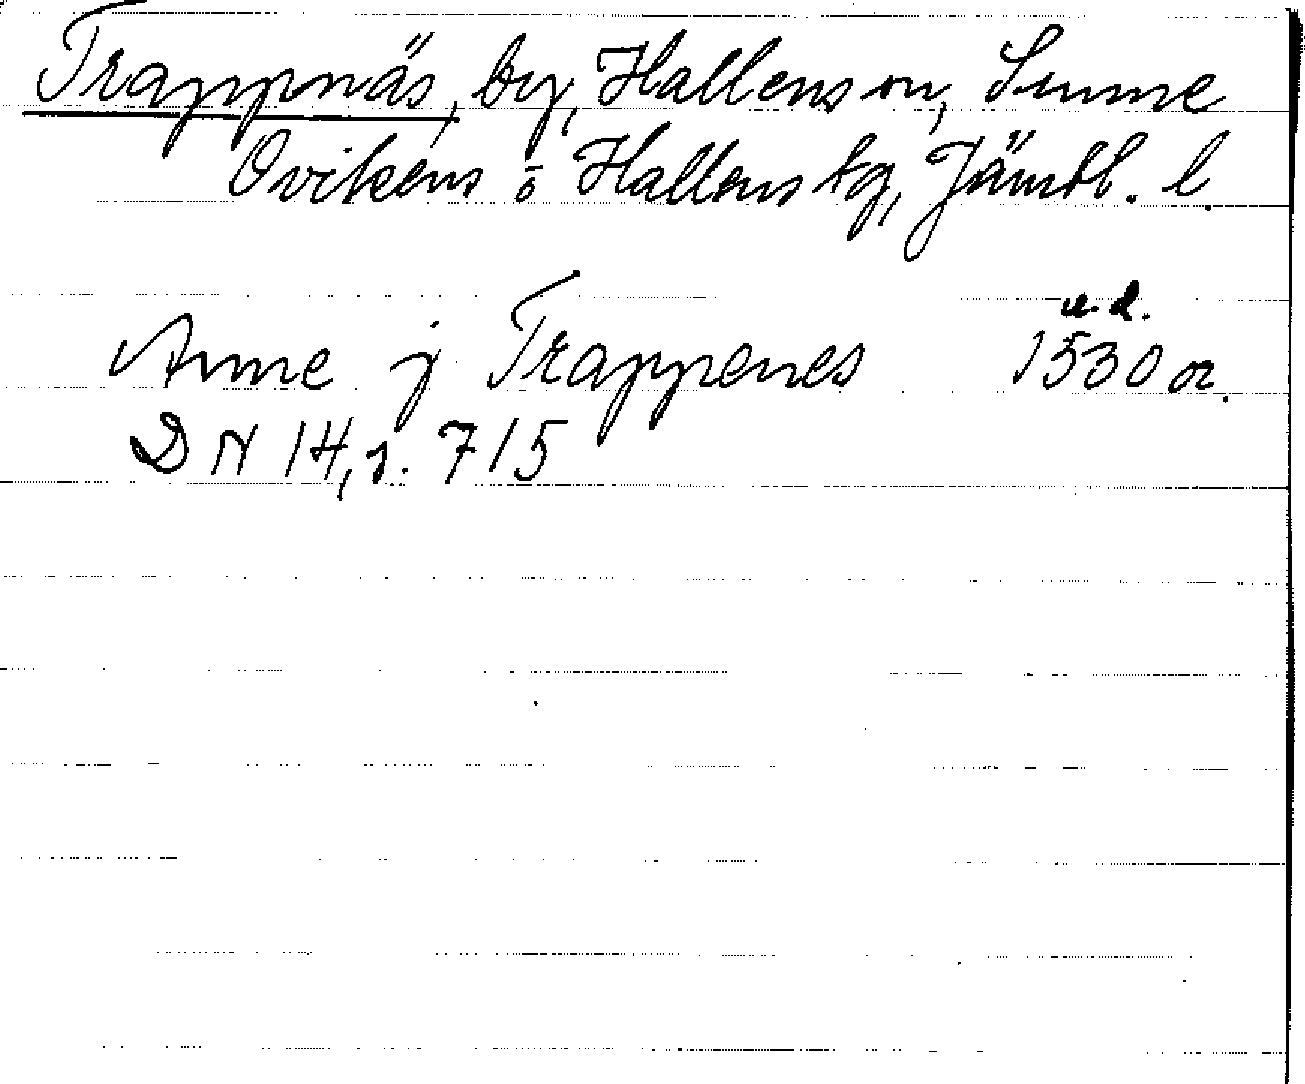 Trappnäs, by, Hallens sn, Sunne
Ovikens o Hallens tg, Jämtl. l.
u.d.
Arme j Trappenes 1530 or.
DN 14, s. 715